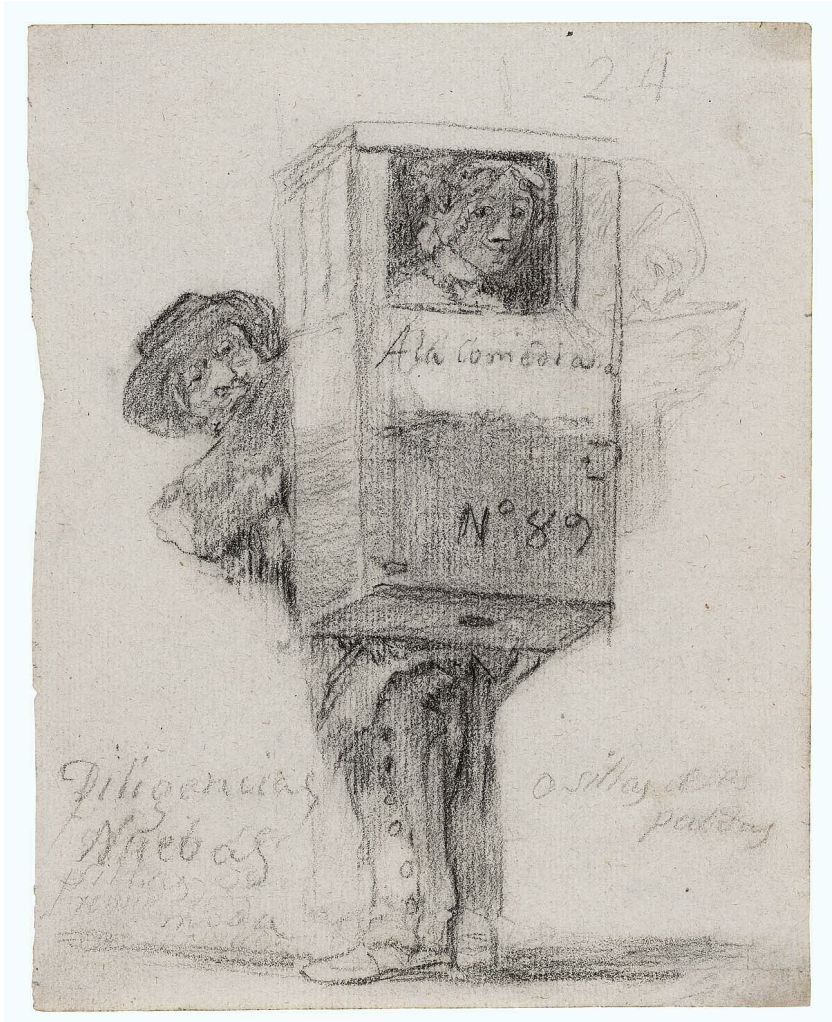 24
A la comedia
Nº 89
Diligencias
Nuebas
o sillas de es
paldas
moda